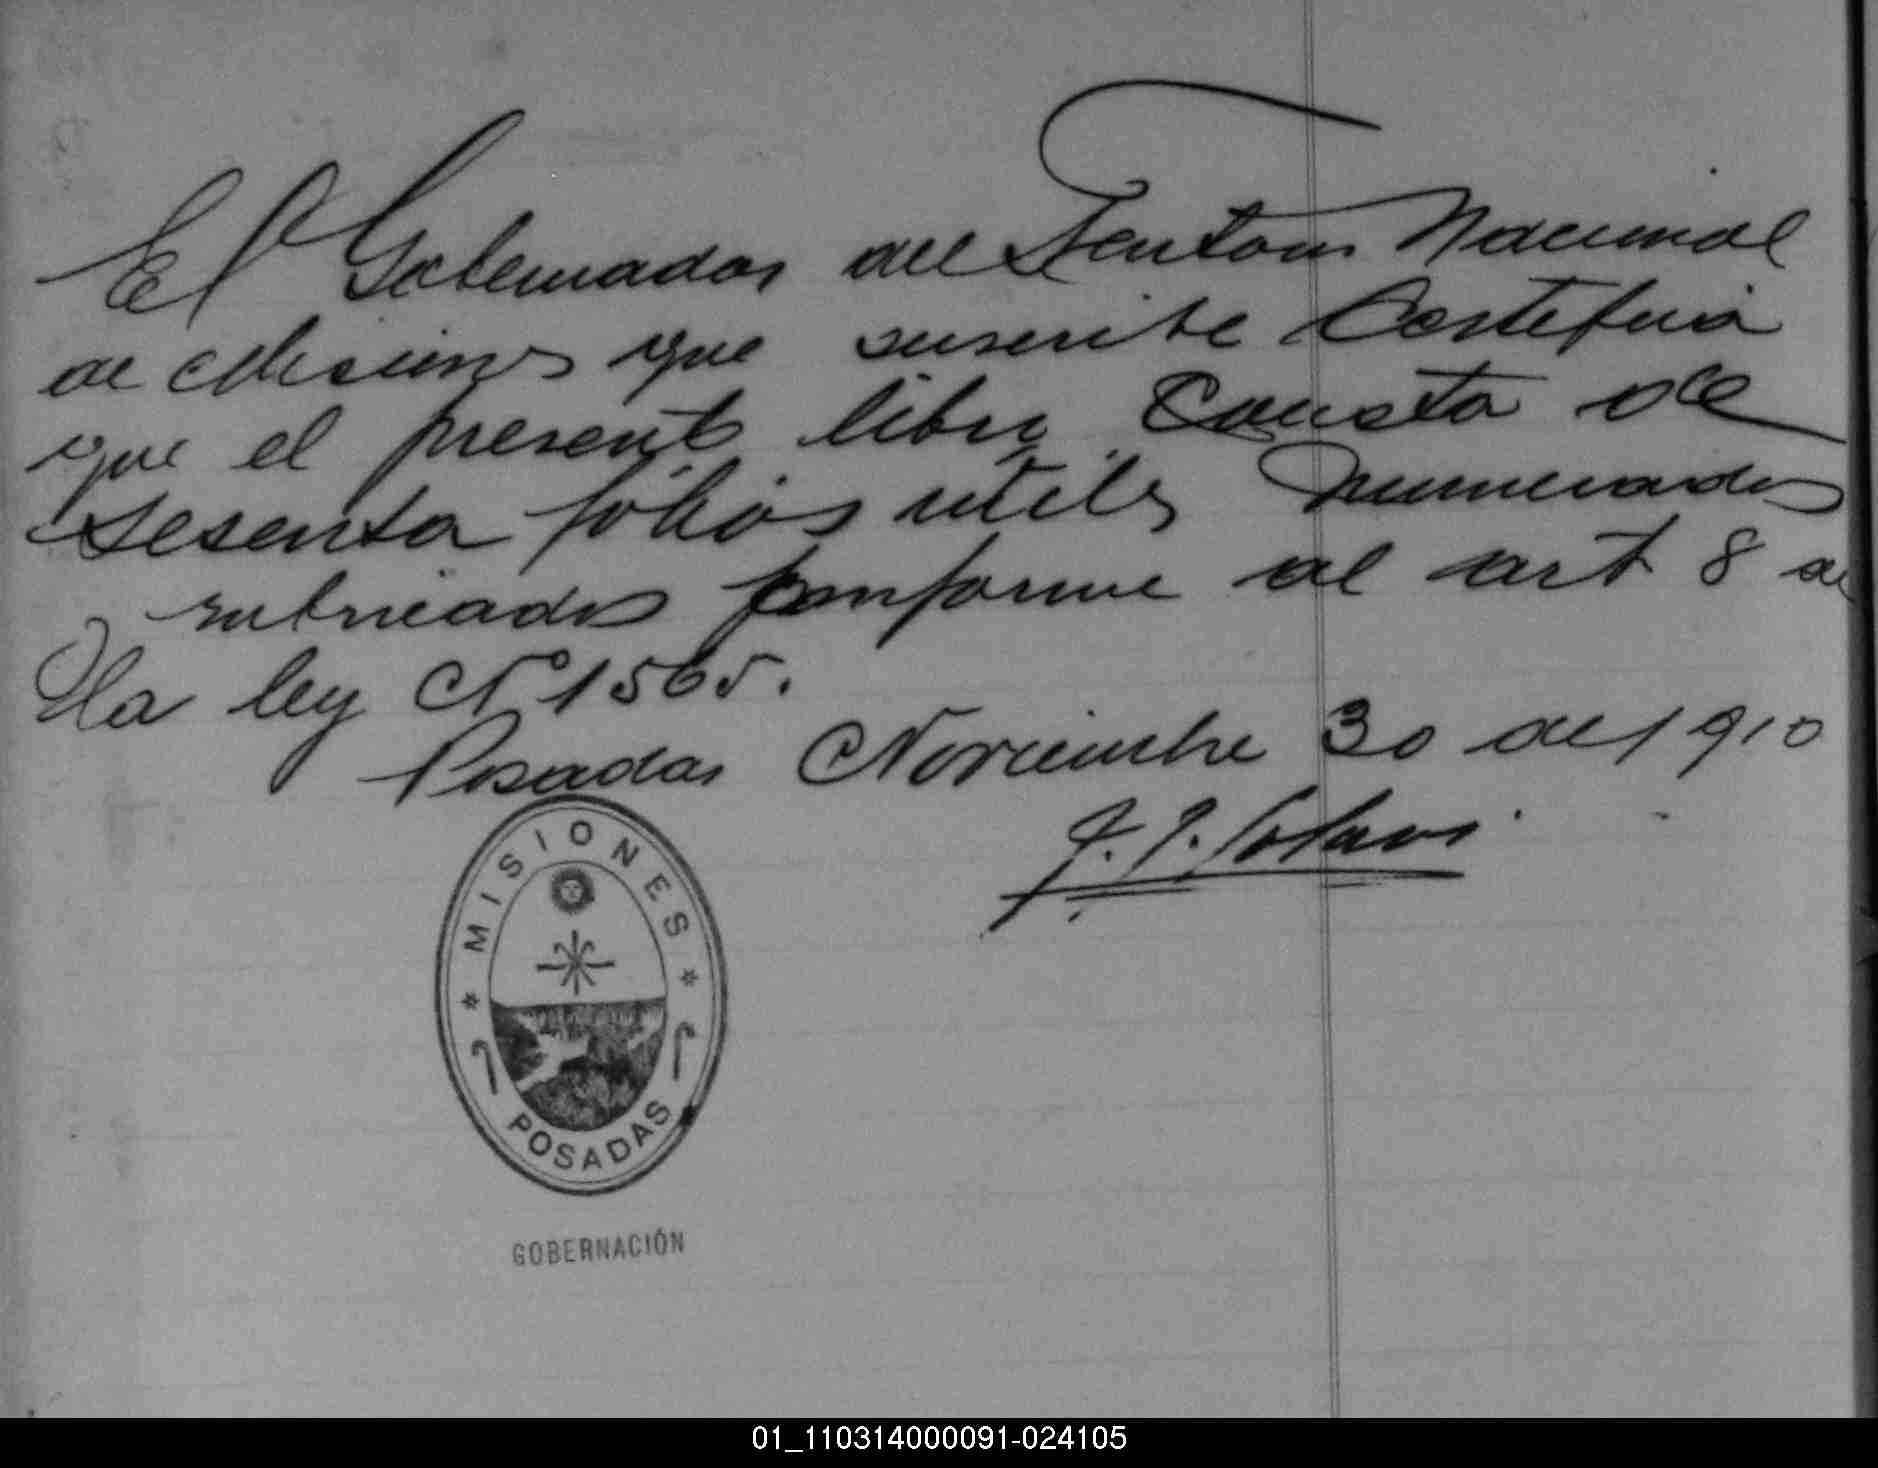 El Gobernador del Territorio Nacional
de Misiones que suscribe Certifica
que el presente libro Consta de
sesenta fólios utiles numerados
rubricados conforme al art 8 de
la ley Nº 1565.
Posadas Noviembre 30 de 1910
J. J. Lanusse
MISIONES
POSADAS
GOBERNACIÓN
01_110314000091-024105